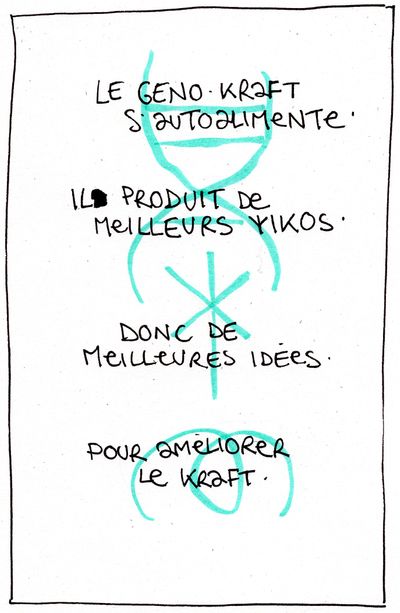 LE GENO·KRAFT
S'AUTOALIMENTE.
IL PRODUIT DE
MEILLEURS YIKOS.
DONC DE
MEILLEURES IDÉES.
POUR AMÉLIORER
LE KRAFT.